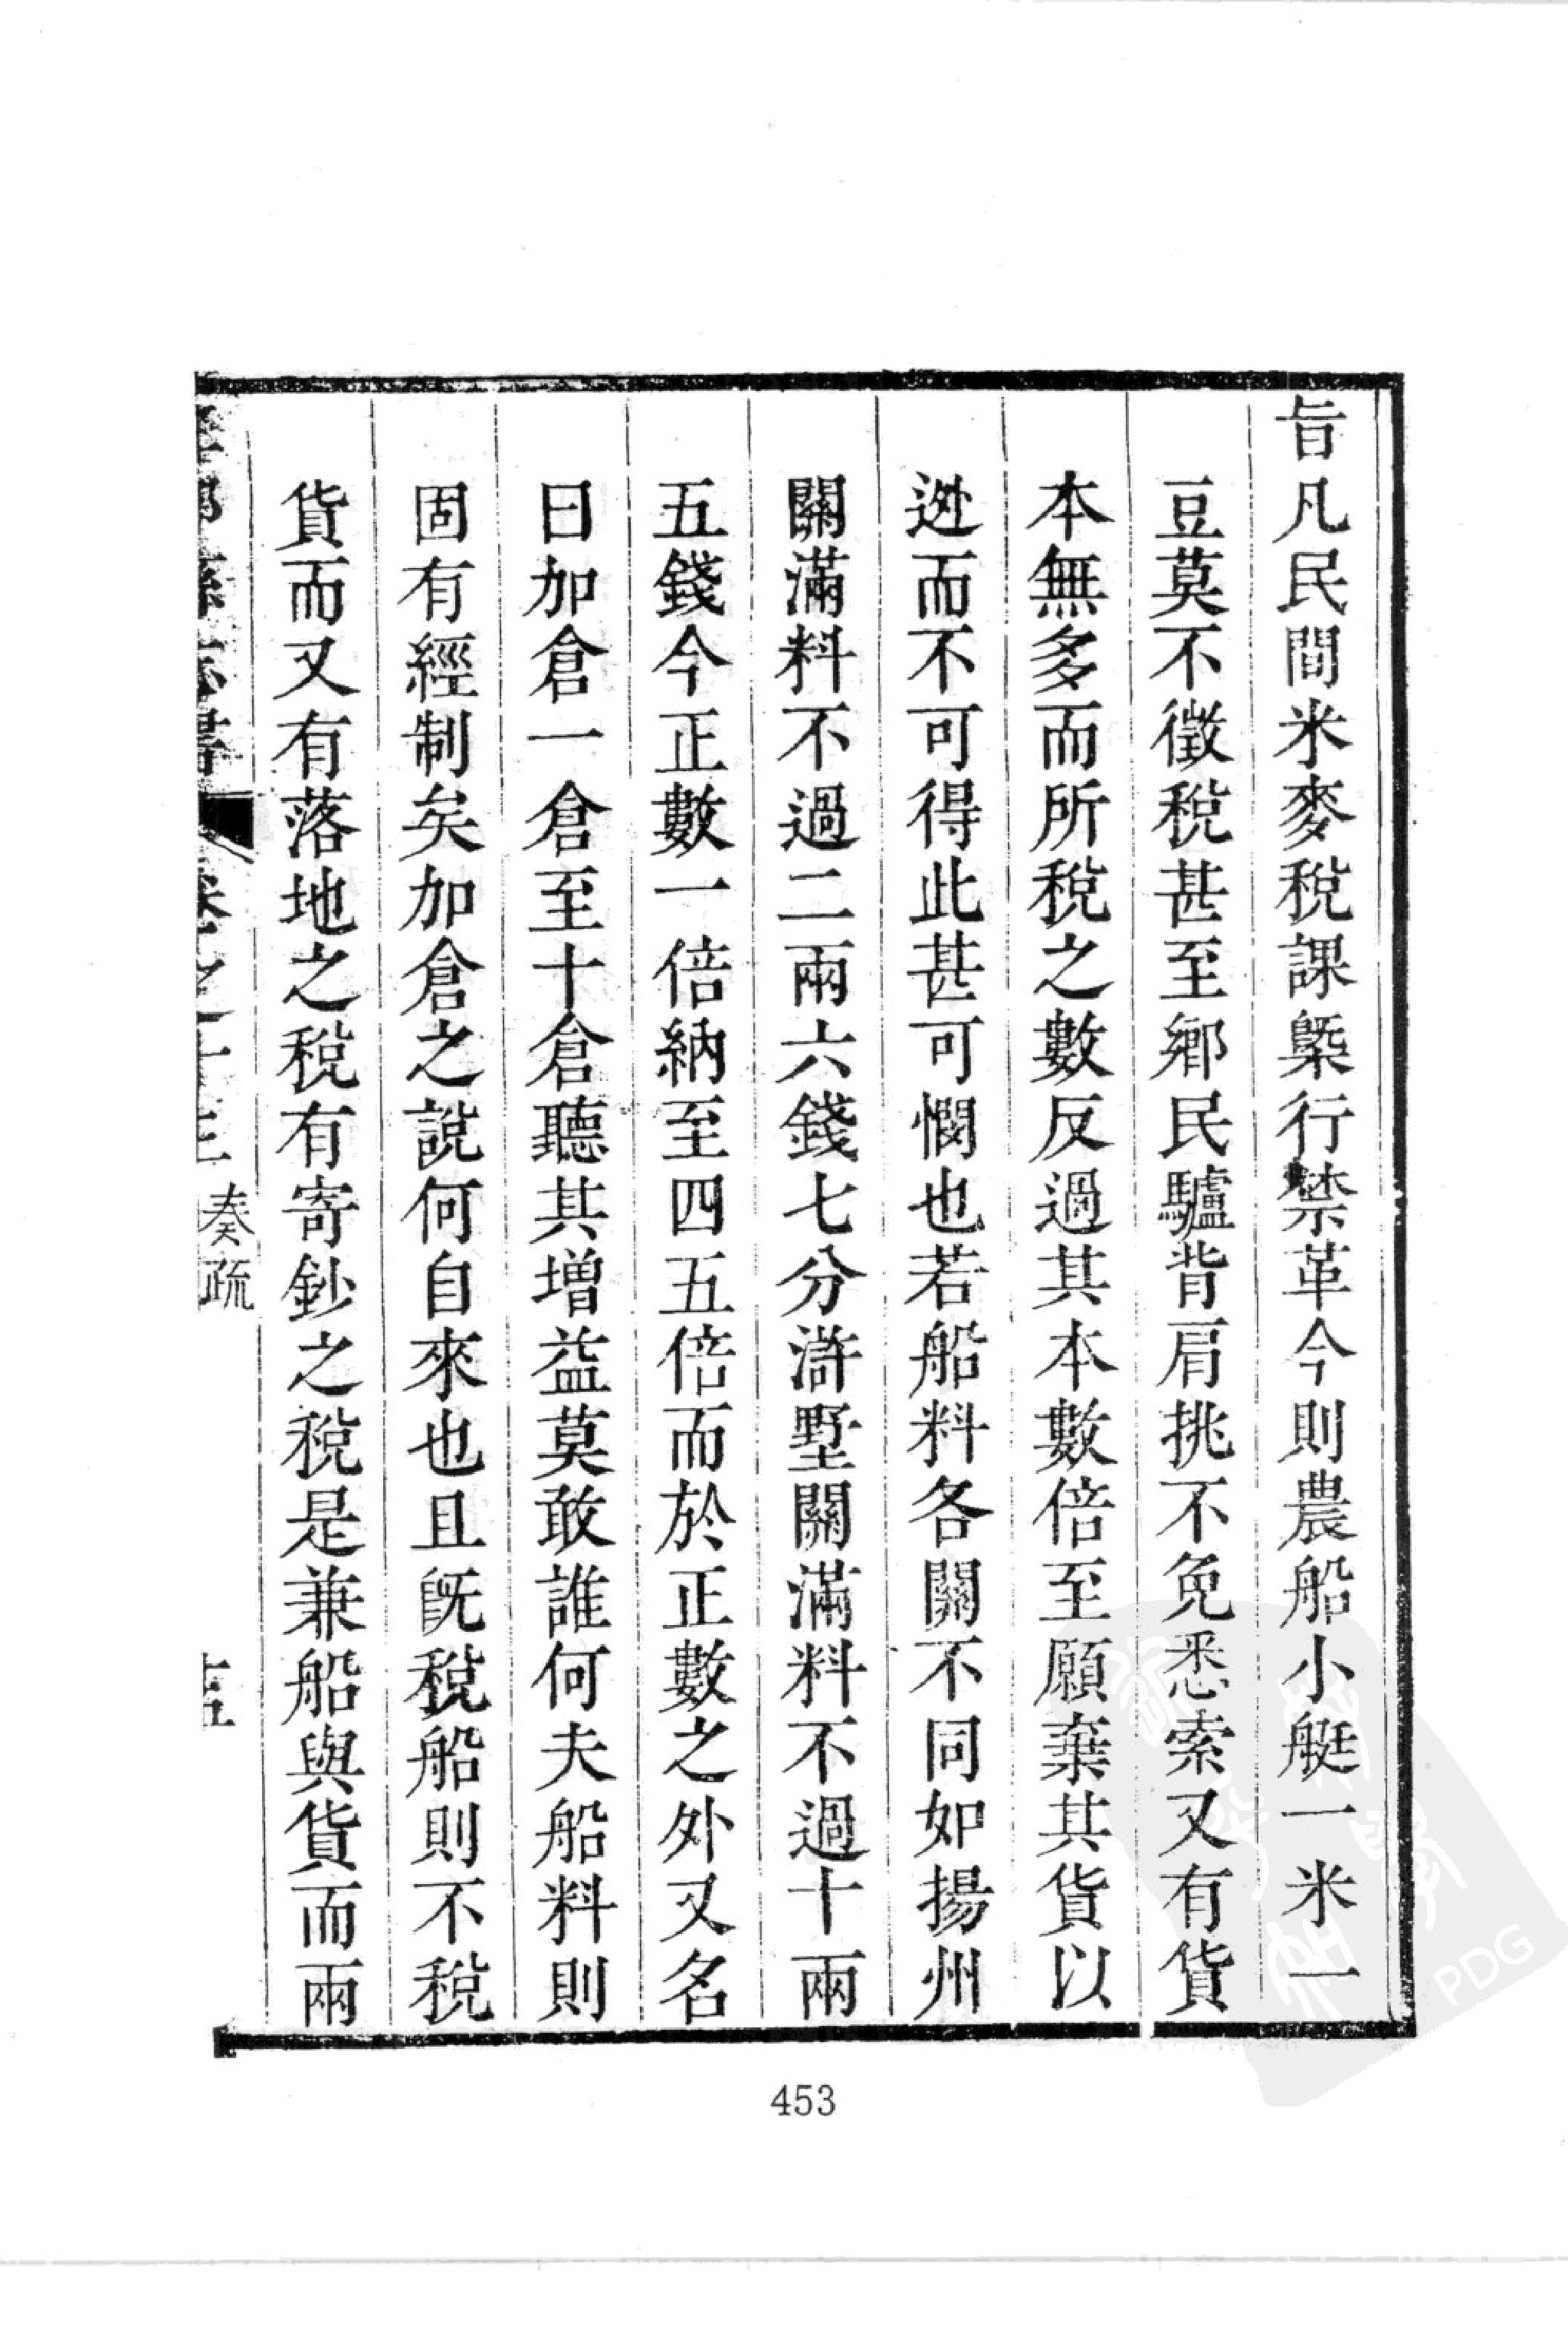 旨凡民間米麥稅課槩行禁革今則農船小艇一米一
豆莫不徵稅甚至鄉民驢背肩挑不免悉索又有貨
本無多而所稅之數反過其本數倍至願棄其貨以
迯而不可得此甚可憫也若船料各關不同如揚州
關滿料不過二兩六錢七分滸墅關滿料不過十兩
五錢今正數一倍納至四五倍而於正數之外又名
曰加倉一倉至十倉聽其增益莫敢誰何夫船料則
固有經制矣加倉之說何自來也且旣稅船則不稅
貨而又有落地之稅有寄鈔之稅是兼船與貨而兩
卷之十三 奏疏
453
PDG